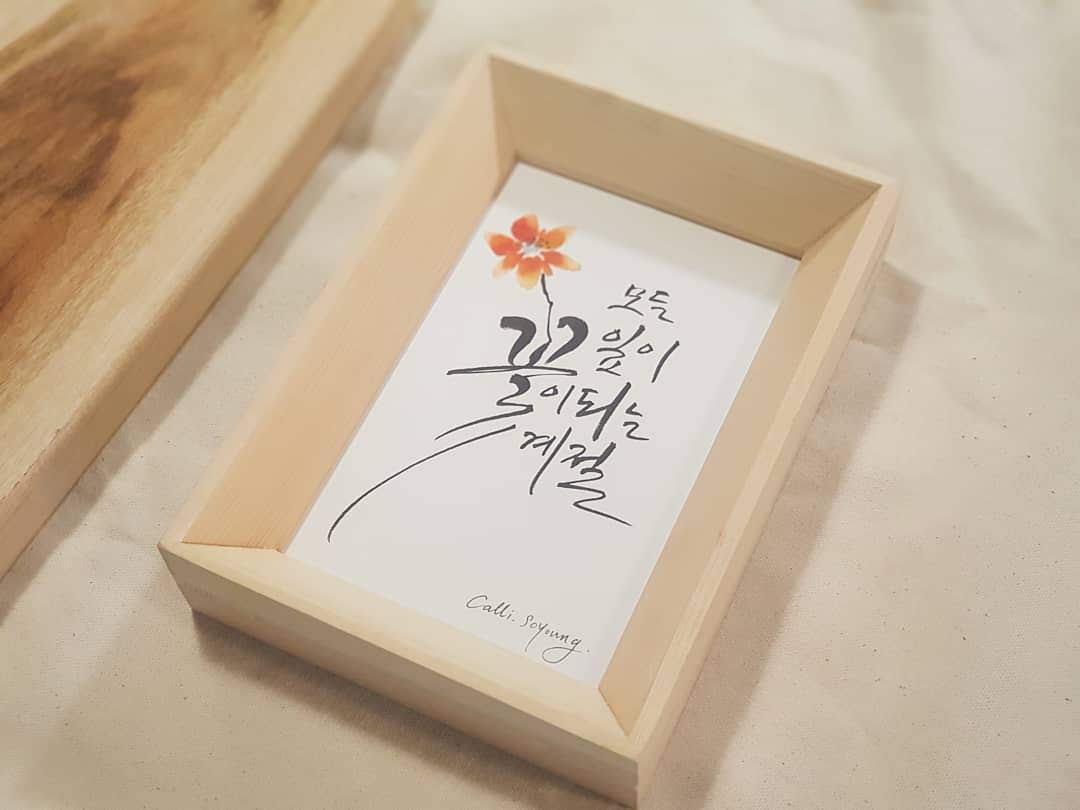 모든
잎이
꽃이되는
계절
Calli. soyoung.